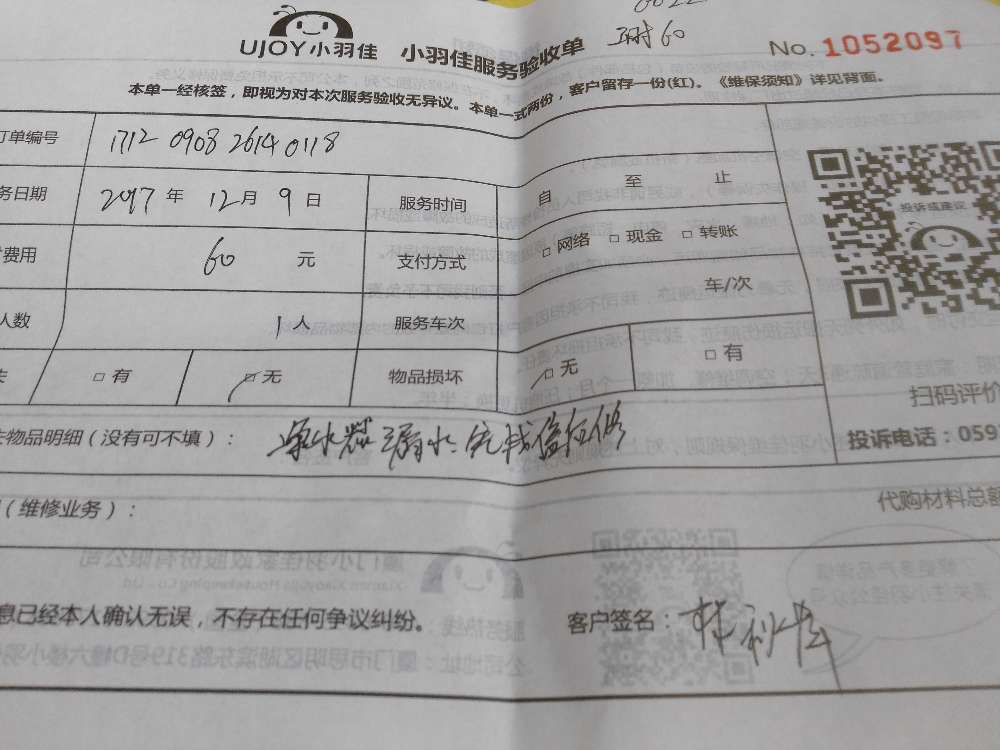 UJOY小羽佳 小羽佳服务验收单
No. 1052097
本单一经核签，即视为对本次服务验收无异议。本单一式两份，客户留存一份(红)。《维保须知》详见背面。
订单编号 1712 0908 2614 0118
务日期 2017 年 12 月 9 日 服务时间 自 至 止
费用 60 元 支付方式 □ 网络 □ 现金 □ 转账
人数 1 人 服务车次 车/次
□ 有 □ 无 物品损坏 □ 无 □ 有
投诉或建议
扫码评价
投诉电话：059
物品明细（没有可不填）： 热水器漏水
（维修业务）：
代购材料总额
息已经本人确认无误，不存在任何争议纠纷。
客户签名：